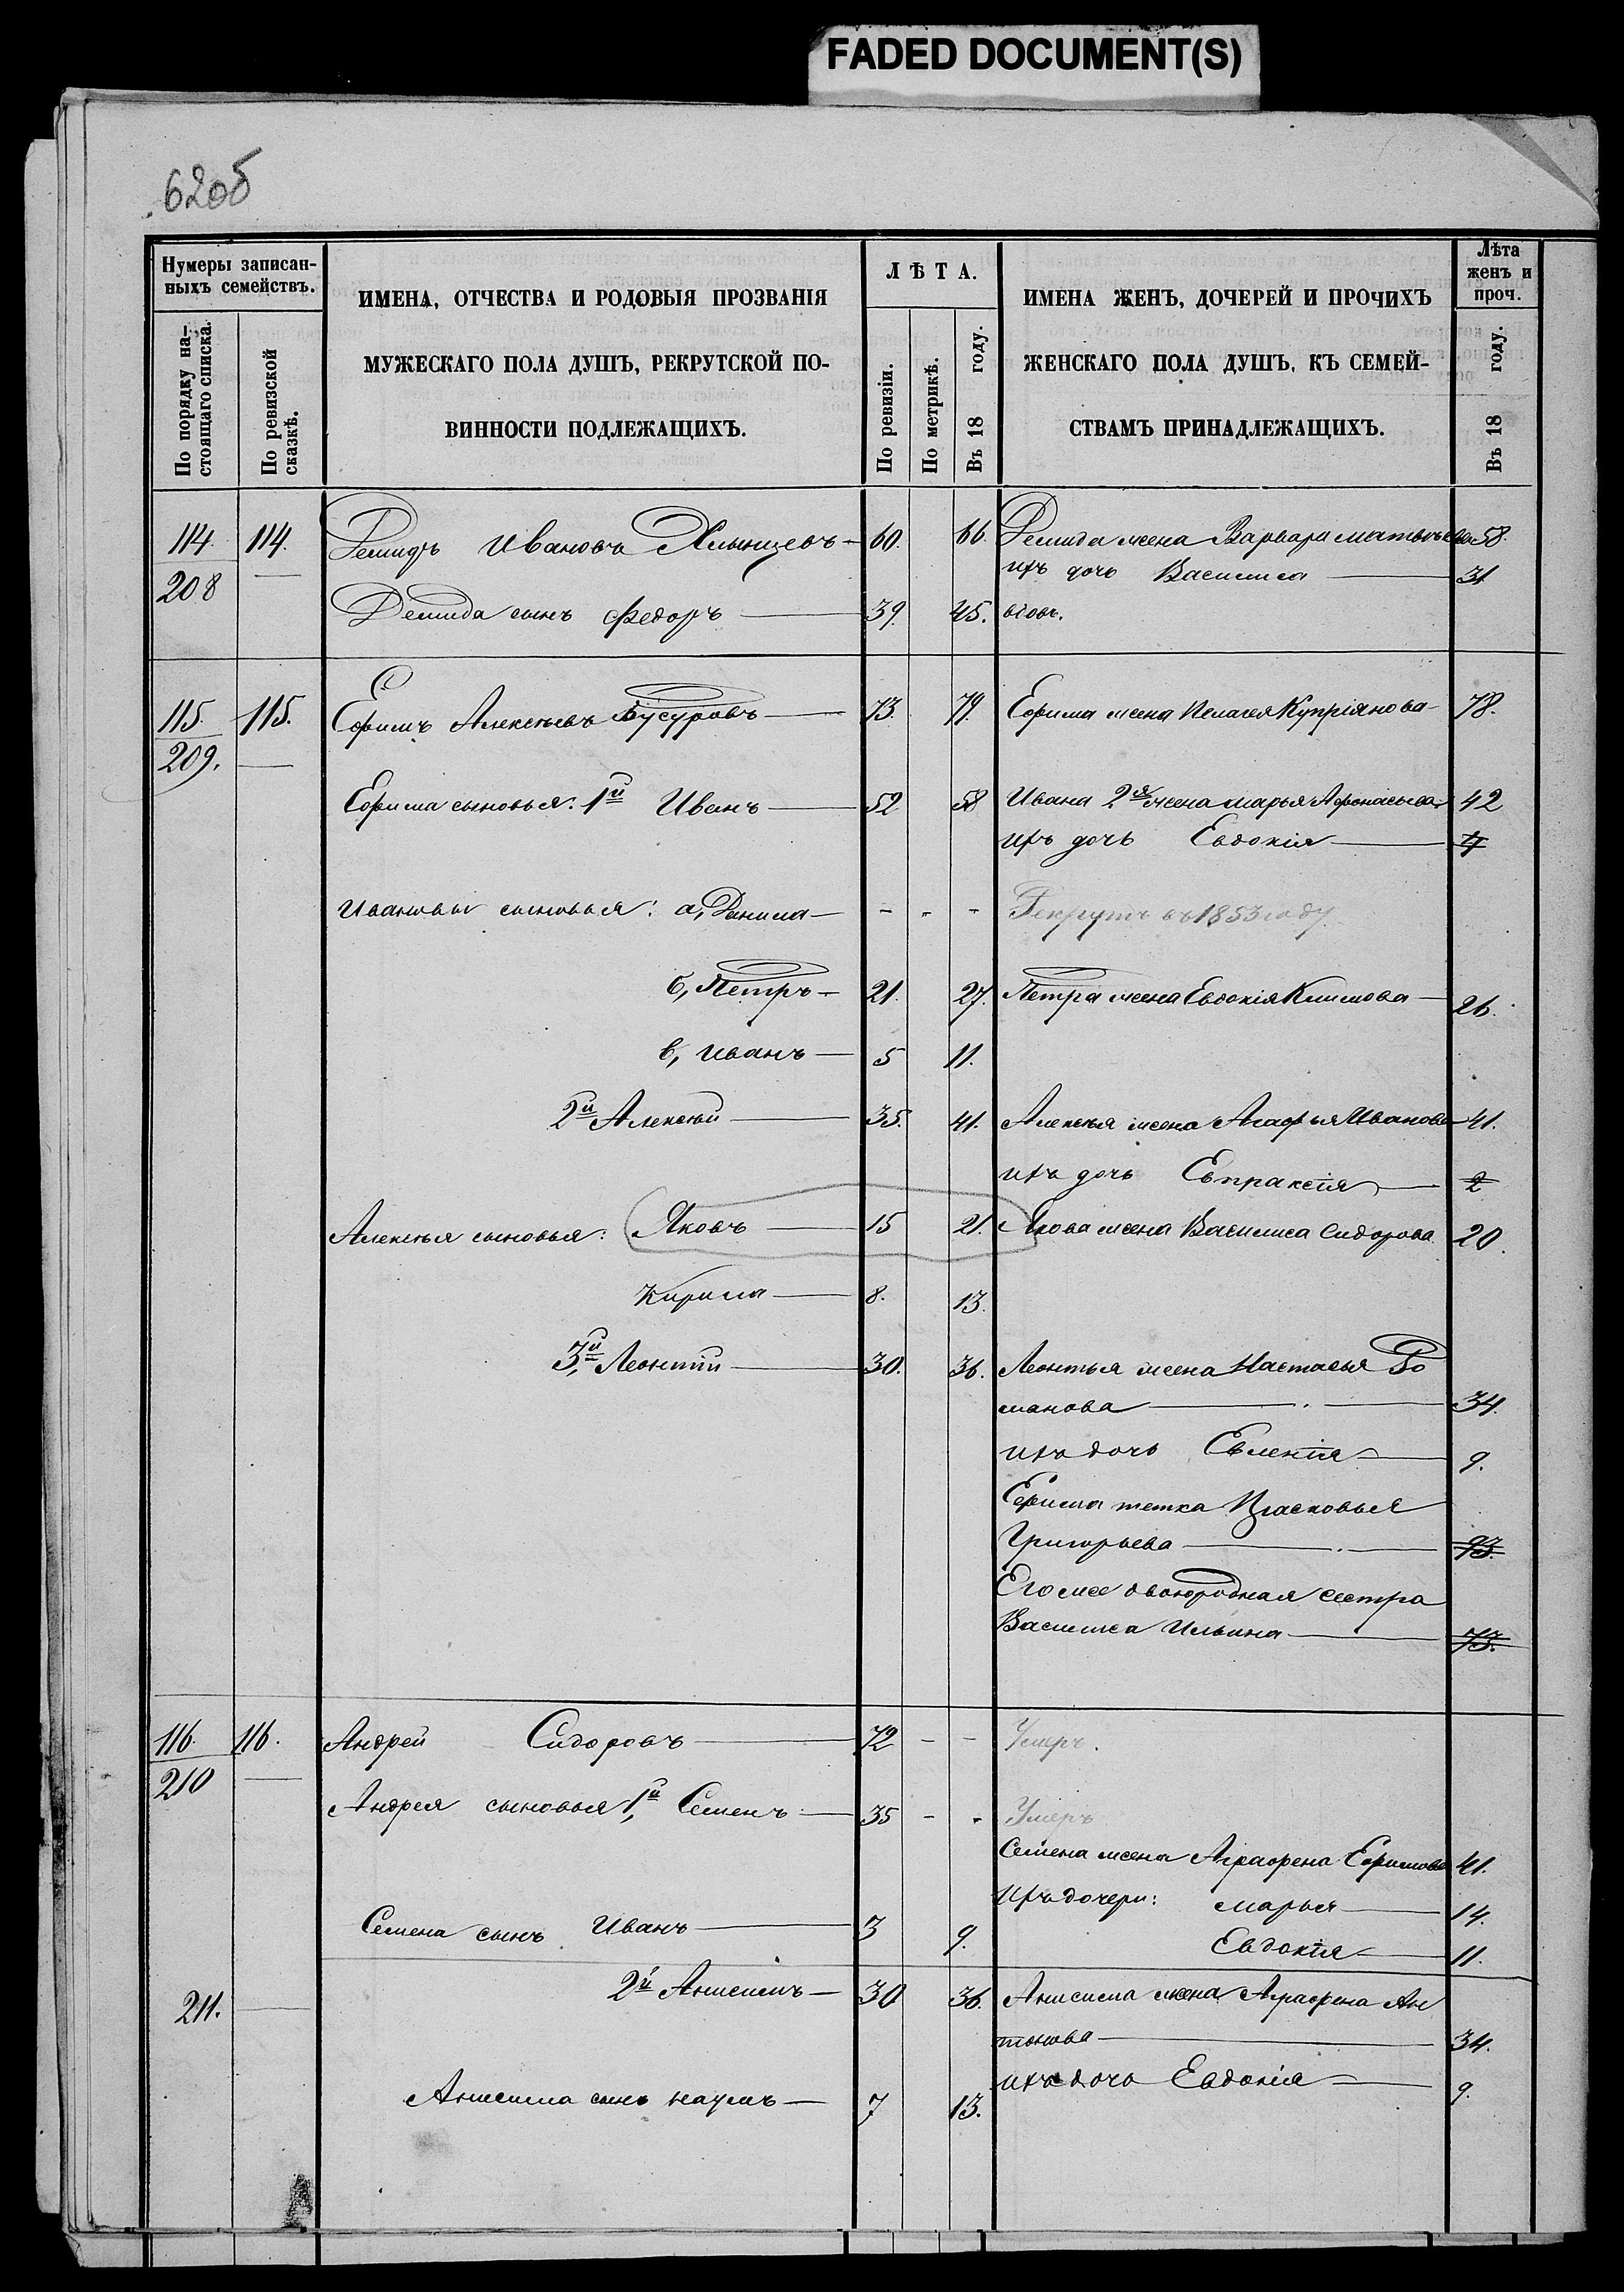 FADED DOCUMENT(S)
62об
Нумеры записан-
ныхъ семействъ.
По порядку на-
стоящаго списка.
По ревизской
сказкѣ.
ИМЕНА, ОТЧЕСТВА И РОДОВЫЯ ПРОЗВАНІЯ
МУЖЕСКАГО ПОЛА ДУШЪ, РЕКРУТСКОЙ ПО-
ВИННОСТИ ПОДЛЕЖАЩИХЪ.
ЛѢТА.
По ревизіи.
По метрикѣ.
Въ 18 году.
ИМЕНА ЖЕНЪ, ДОЧЕРЕЙ И ПРОЧИХЪ
ЖЕНСКАГО ПОЛА ДУШЪ, КЪ СЕМЕЙ-
СТВАМЪ ПРИНАДЛЕЖАЩИХЪ.
Лѣта
женъ и
проч.
Въ 18 году.
114. 114. Демидъ Ивановъ Хлынцевъ — 60. 66. Демида жена Варвара Матвѣева 58.
208 — ихъ дочь Василиса — 31
Демида сынъ Федоръ — 39. 45. вдовъ.
115. 115. Ефимъ Алексѣевъ Бусуровъ — 73. 79. Ефима жена Пелагея Купріянова 78.
209. —
Ефима сыновья: 1й Иванъ — 52 58 Ивана 2я жена Марья Афонасьева 42
ихъ дочь Евдокія — 4
Ивановы сыновья: а, Данила — - - - Рекрутъ въ 1853 году.
б, Петръ — 21. 27. Петра жена Евдокія Климова — 26.
в, Иванъ — 5 11.
2й Алексѣй — 35. 41. Алексѣя жена Агафья Иванова 41.
ихъ дочь Евпраксія — 2
Алексѣя сыновья: Яковъ — 15 21. Якова жена Василиса Сидорова 20.
Кирила — 8. 13.
3й, Леонтій — 30. 36. Леонтья жена Настасья Ро
манова — 34.
ихъ дочь Евленія — 9.
Ефима тетка Прасковья
Григорьева — 93.
Его же двоюродная сестра
Василиса Ильина — 73.
116. 116. Андрей Сидоровъ — 72 - - Умеръ.
210 —
Андрея сыновья 1й, Семенъ — 35 - - Умеръ
Семена жена Аграфена Ефимова 41.
ихъ дочери: Марья — 14.
Семена сынъ Иванъ — 3 9.
Евдокія — 11.
211. — 2й Анисимъ — 30 36. Анисима жена Аграфена Ан
тонова — 34.
ихъ дочь Евдокія — 9.
Анисима сынъ Наумъ — 7 13.